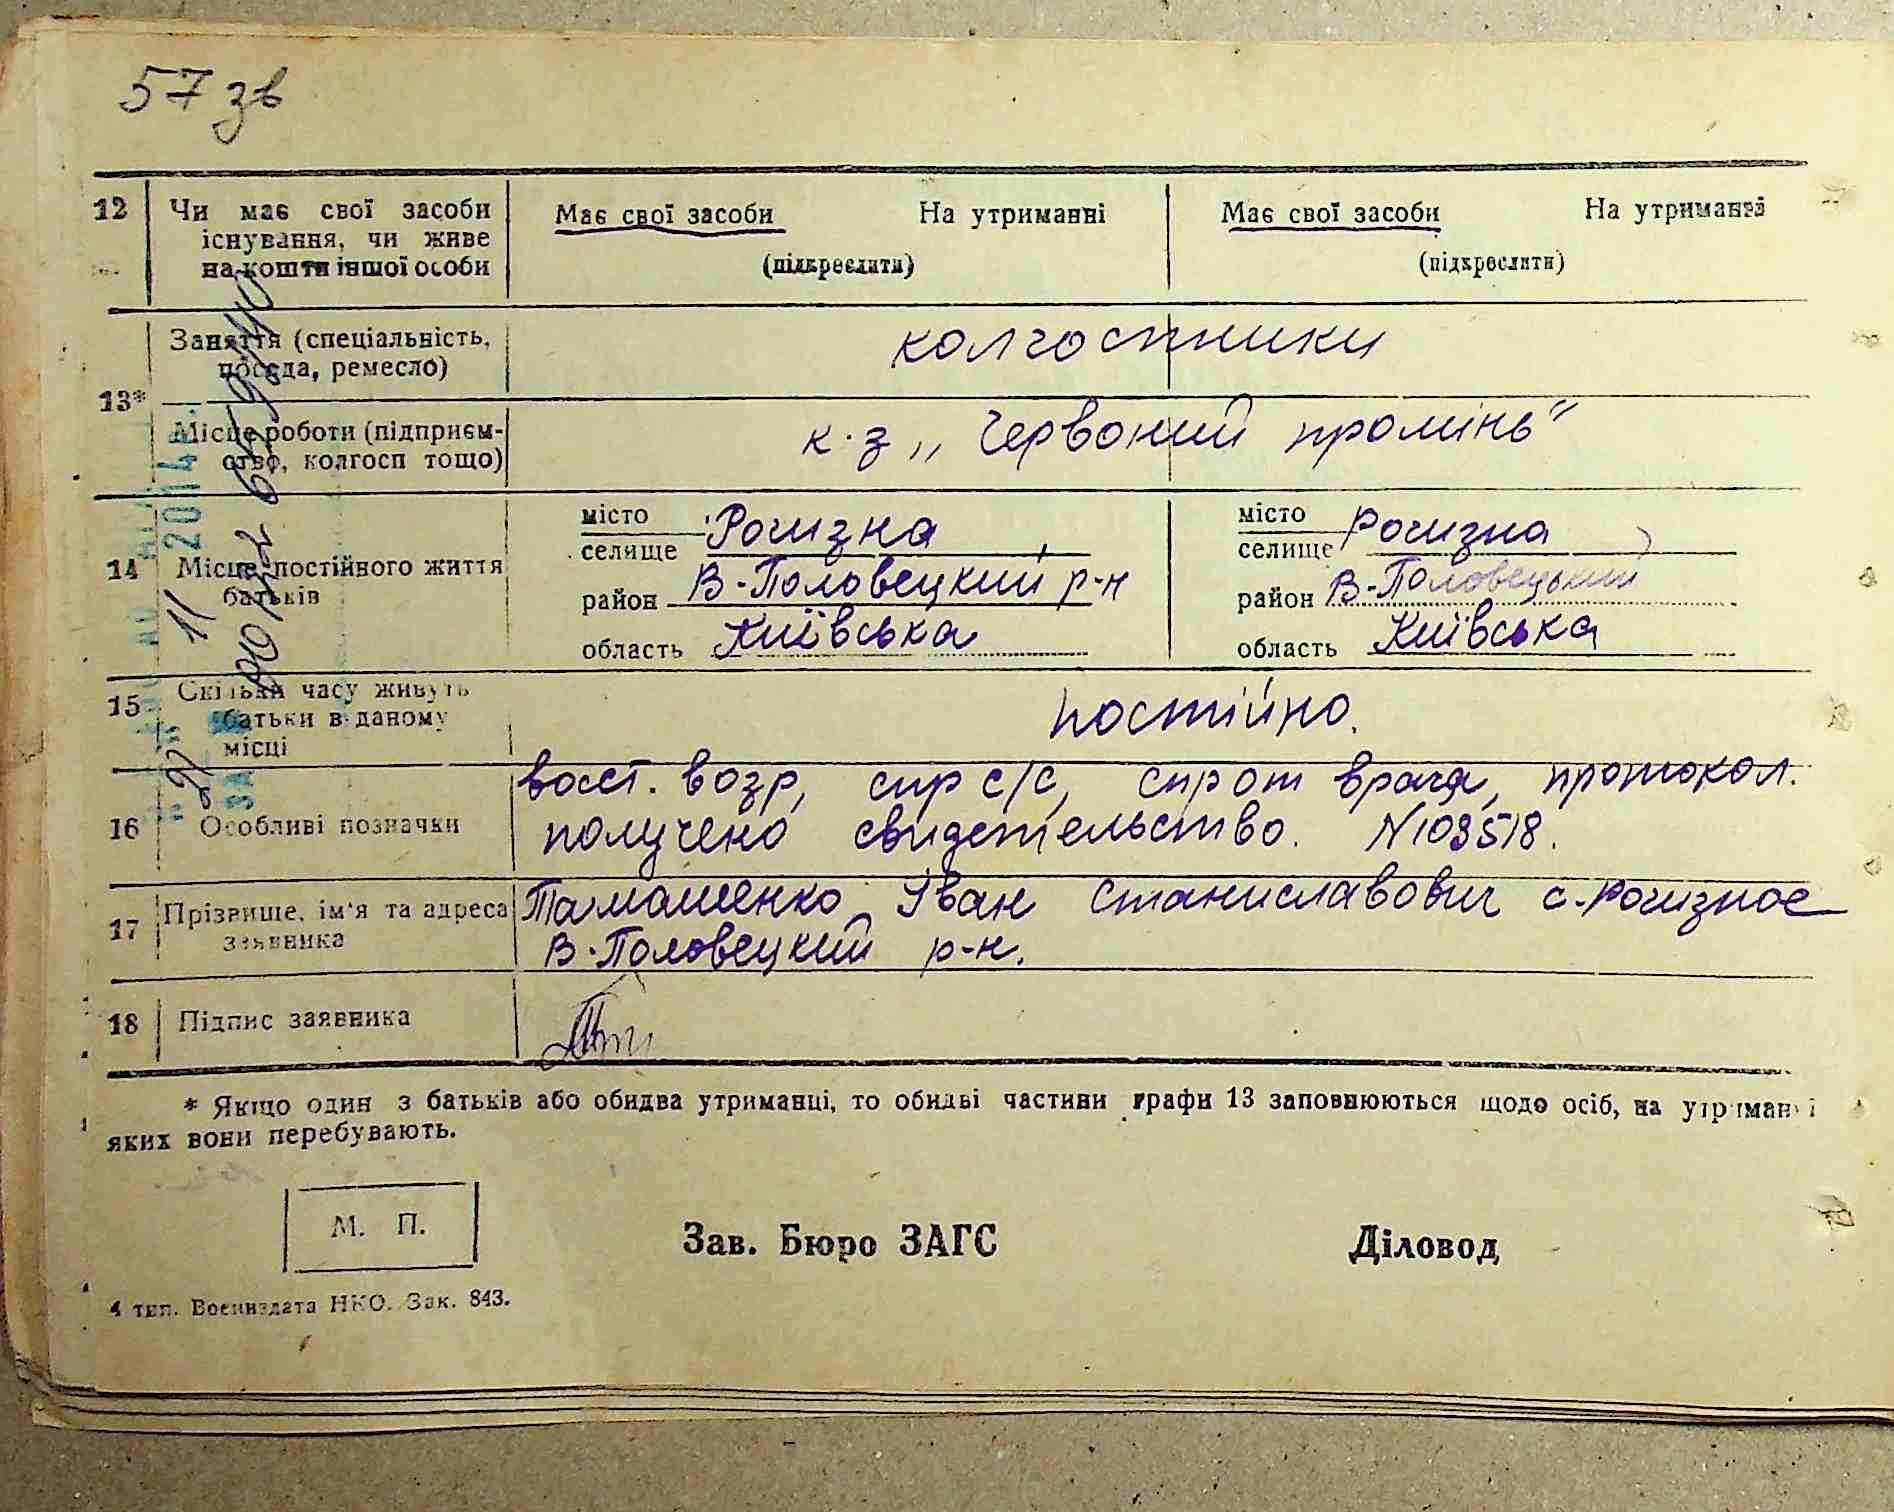 57 зв
12 Чи має свої засоби існування, чи живе на кошти іншої особи
Має свої засоби На утриманні (підкреслити)
Має свої засоби На утриманні (підкреслити)
13*
Заняття (спеціальність, посада, ремесло)
колгоспники
Місце роботи (підприєм-
ство, колгосп тощо)
к-з „Червоний промінь"
14 Місце постійного життя батьків
місто
селище Рогизна
район В-Половецкий р-н
область Київська
місто
селище Рогизна
район В-Половецький
область Київська
15 Скільки часу живуть батьки в даному місці
постійно.
16 Особливі позначки
вост. возр, спр с/с, спр от врача, протокол.
получено свидетельство. N109518.
17 Прізвище, ім'я та адреса заявника
Тамашенко Іван Станиславович с. Рогизное
В-Половецкий р-н.
18 Підпис заявника
* Якщо один з батьків або обидва утриманці, то обидві частини графи 13 заповнюються щодо осіб, на утриманні
яких вони перебувають.
М. П.
Зав. Бюро ЗАГС Діловод
4 тип. Воениздата НКО. Зак. 843.